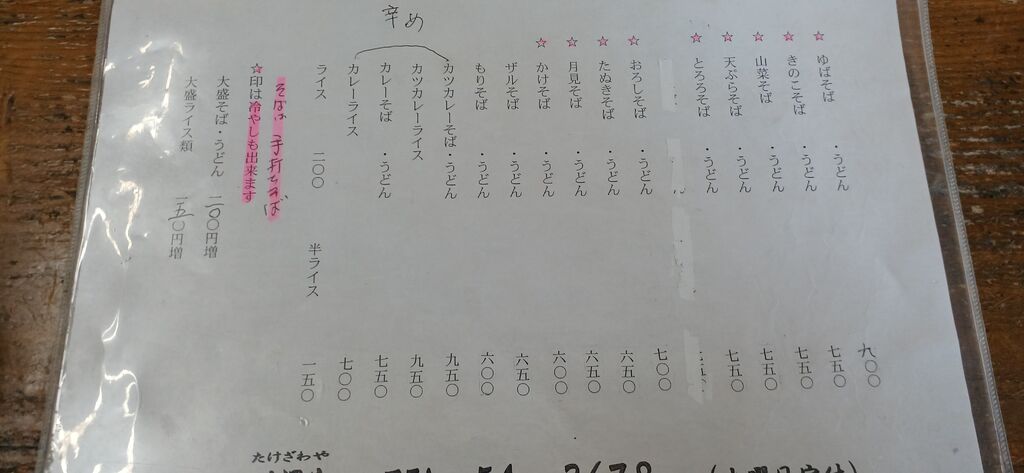 ☆ ゆばそば ・うどん 九〇〇
☆ きのこそば ・うどん 七五〇
☆ 山菜そば ・うどん 七五〇
☆ 天ぷらそば ・うどん 七五〇
☆ とろろそば ・うどん 七五〇
☆ おろしそば ・うどん 七〇〇
☆ たぬきそば ・うどん 六五〇
☆ 月見そば ・うどん 六五〇
☆ かけそば ・うどん 六〇〇
ザルそば ・うどん 六五〇
もりそば ・うどん 六〇〇
辛め
カツカレーそば・うどん 九五〇
カツカレーライス 九五〇
カレーそば ・うどん 七五〇
カレーライス 七〇〇
ライス 二〇〇 半ライス 一五〇
そばは 手打ちそば
☆印は冷やしも出来ます
大盛そば・うどん 二〇〇円増
大盛ライス類 二五〇円増
たけざわや